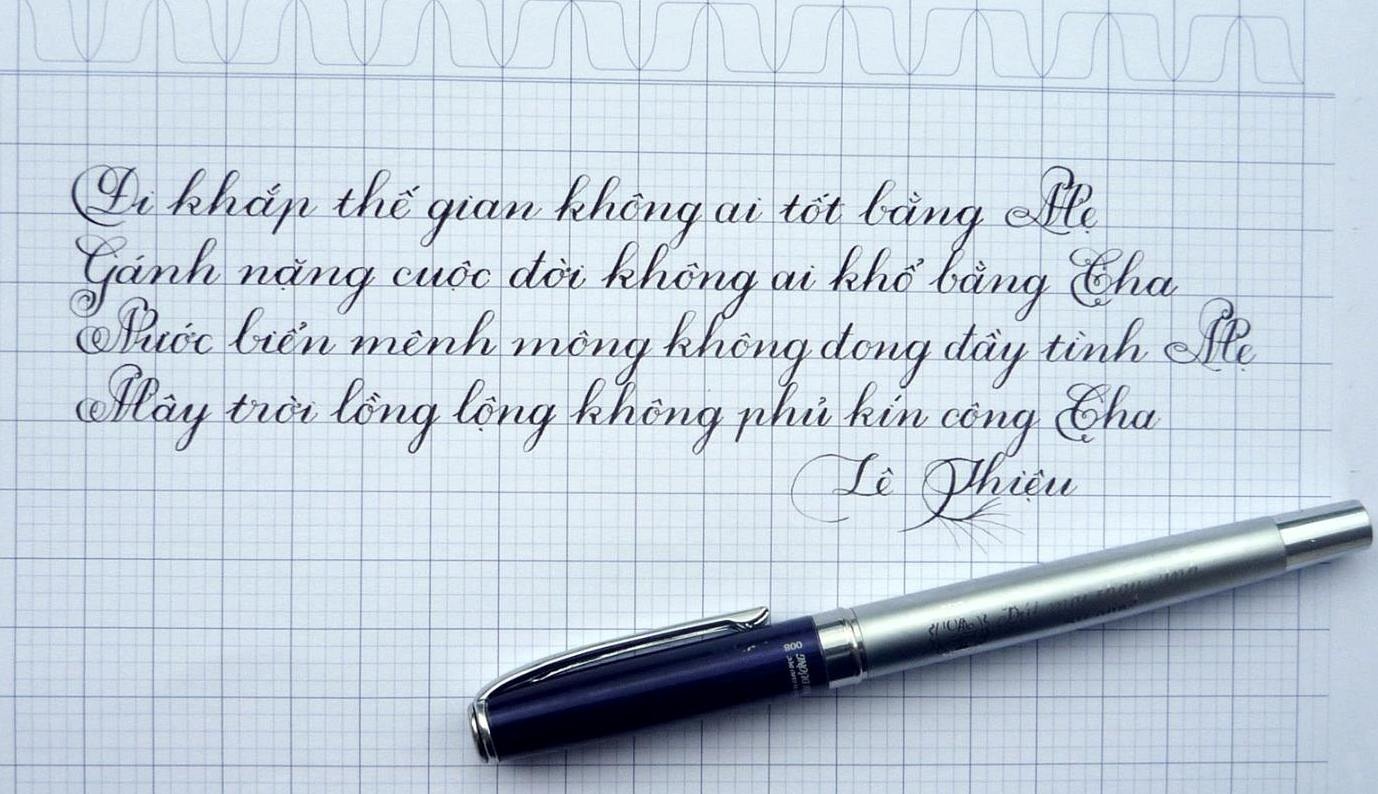 Đi khắp thế gian không ai tốt bằng Mẹ
Gánh nặng cuộc đời không ai khổ bằng Cha
Nước biển mênh mông không đong đầy tình Mẹ
Mây trời lồng lộng không phủ kín công Cha
Lê Thiệu
008